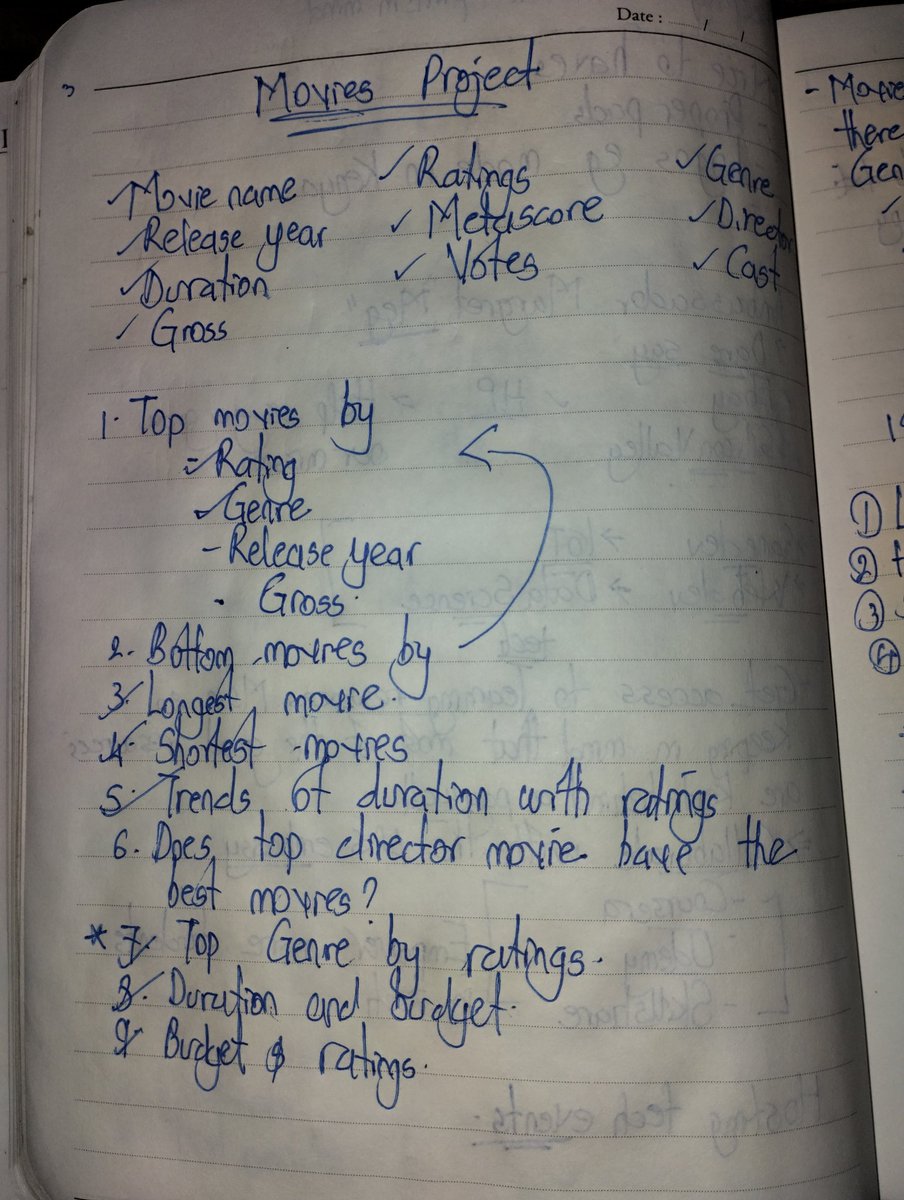 Date : / /
Movies Project
✓ Movie name ✓ Ratings ✓ Genre
✓ Release year ✓ Metascore ✓ Director
✓ Duration ✓ Votes ✓ Cast
✓ Gross
1. Top movies by
- Rating
✓ Genre
- Release year
- Gross.
2. Bottom movies by
3. Longest movie.
4. Shortest movies
5. Trends of duration with ratings
6. Does top director movie have the
best movies?
* 7. Top Genre by ratings.
8. Duration and budget.
9. Budget & ratings.
- Movie
there
Gen
1
2
3
4